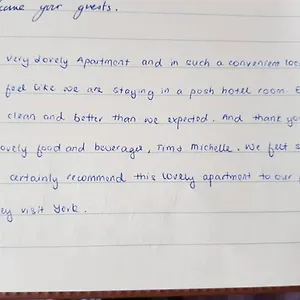 your guests.
very Lovely Apartment and in such a convenient
feel like we are staying in a posh hotel room.
clean and better than we expected. And thank
food and beverages, Tim & Michelle. We felt
certainly recommend this lovely apartment to our
visit York.